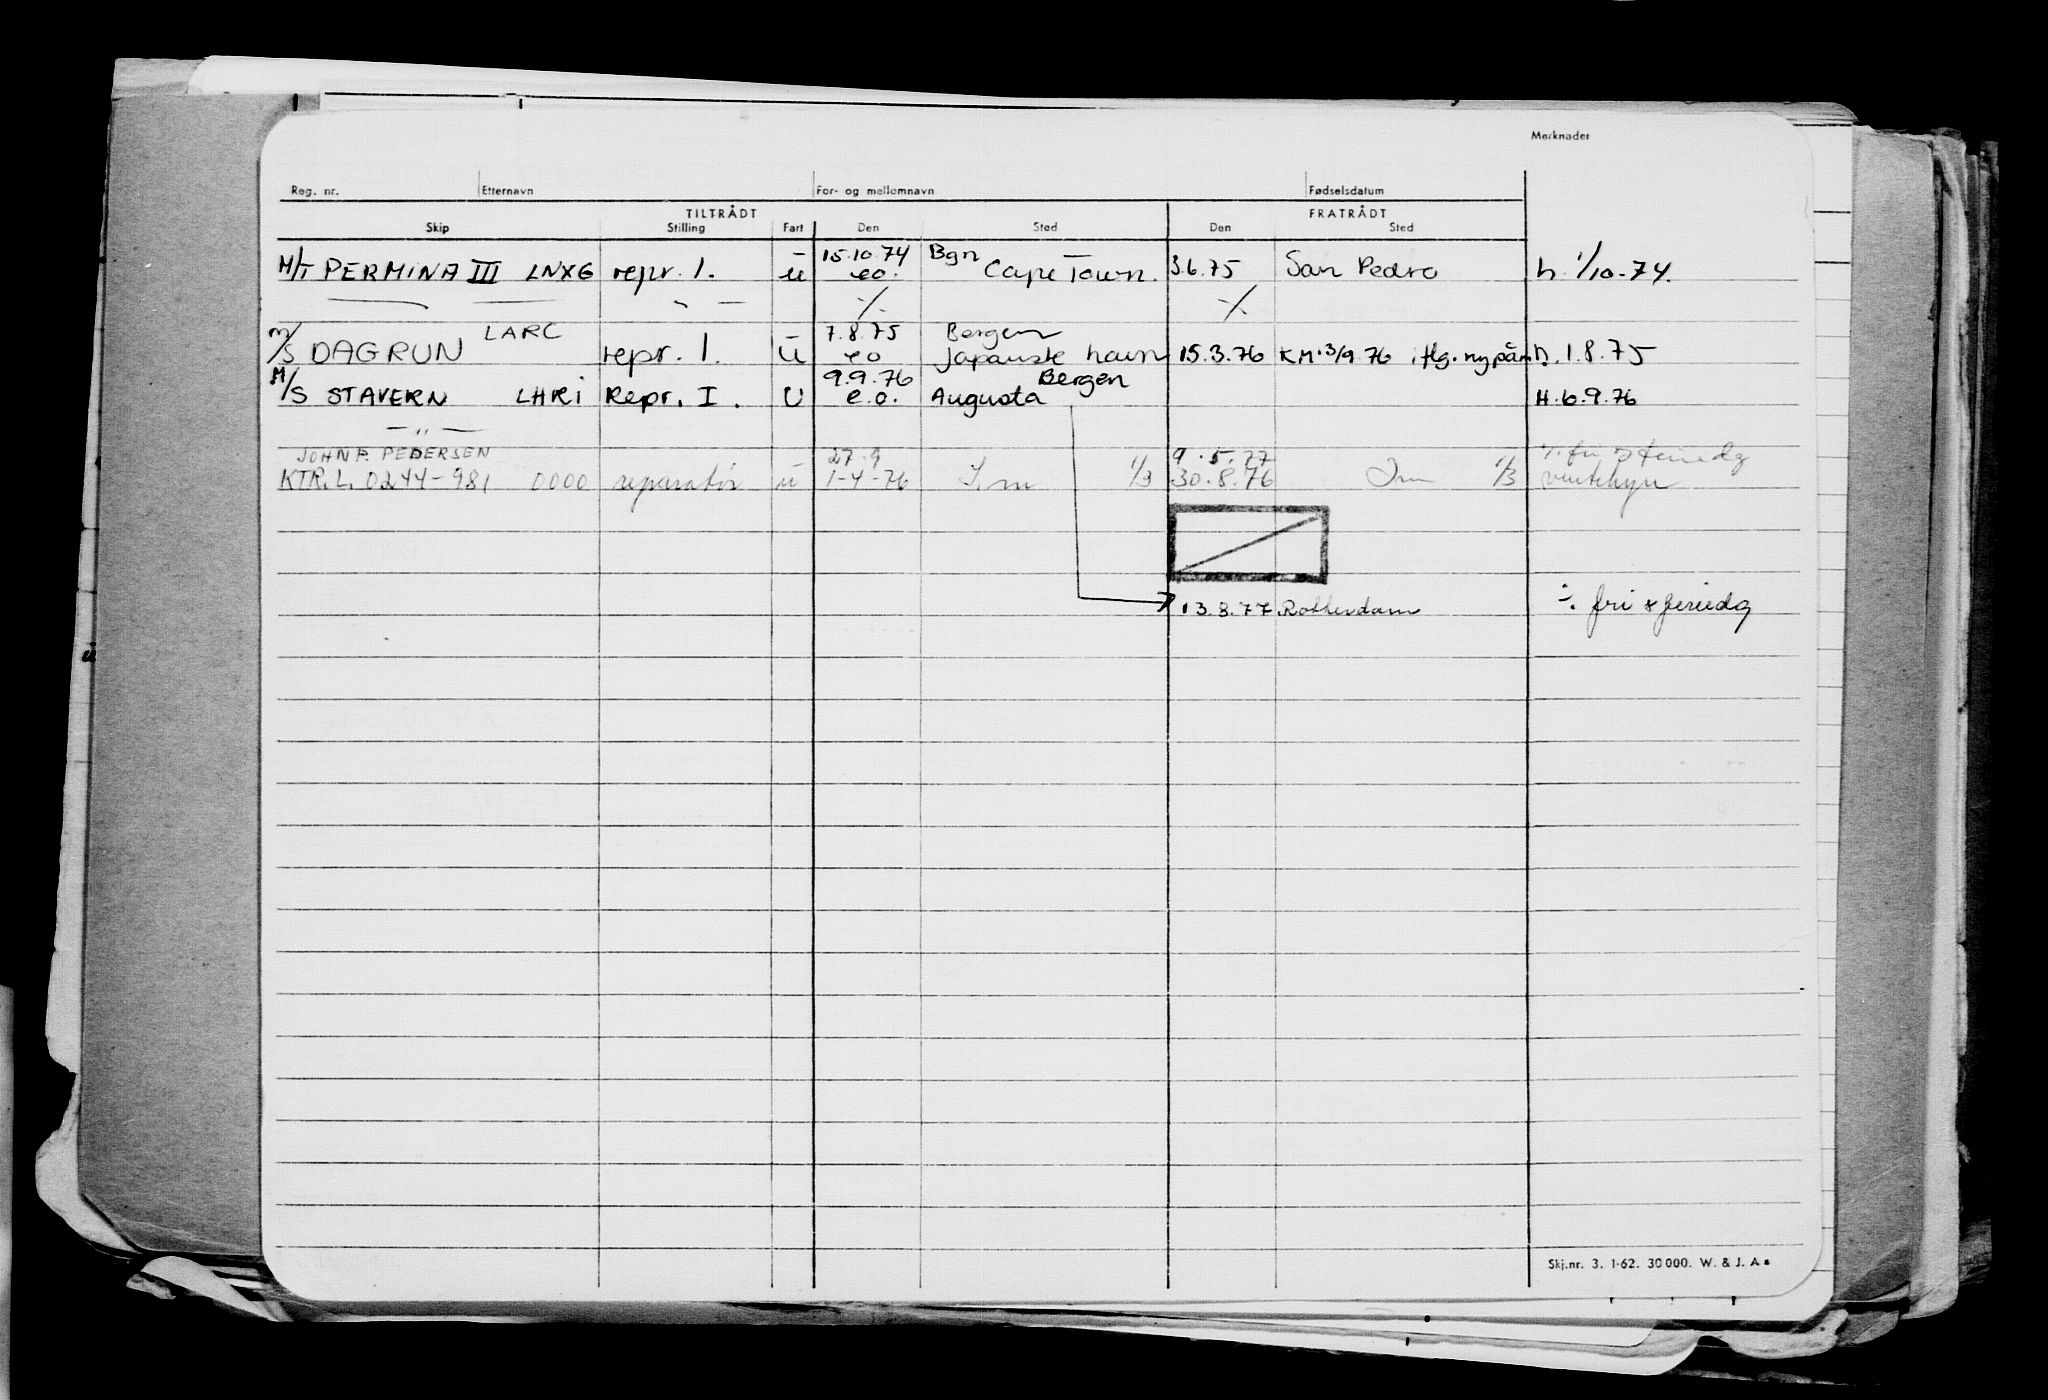 Merknader
Reg. nr. Etternavn For- og mellomnavn Fødselsdatum
TILTRÅDT FRATRÅDT
Skip Stilling Fart Den Sted Den Sted
15.10.74 Bgn
M/T PERMINA III LNXG repr. 1. ū eo. Cape Town. 3.6.75 San Pedro h. 1/10-74.
— — — — ·/. ·/.
LARC 7.8.75 Bergen
m/s DAGRUN repr. 1. ū eo Japanske havn 15.3.76 KM. 3/9.76 iflg. h. 1.8.75
9.9.76 Bergen
M/S STAVERN LHRI Repr. I. U e.o. Augusta H. 6.9.76
— " —
JOHN P. PEDERSEN 27.9 9.5.77 ·/. fri & feriedg
KTR.L. 0244-981 0000 reparatør ū 1-4-76 1/3 30.8.76 1/3 ventehyre
13.8.77 Rotterdam ·/. fri & feriedg
ü
Skj.nr. 3. 1-62. 30000. W. & J. A s